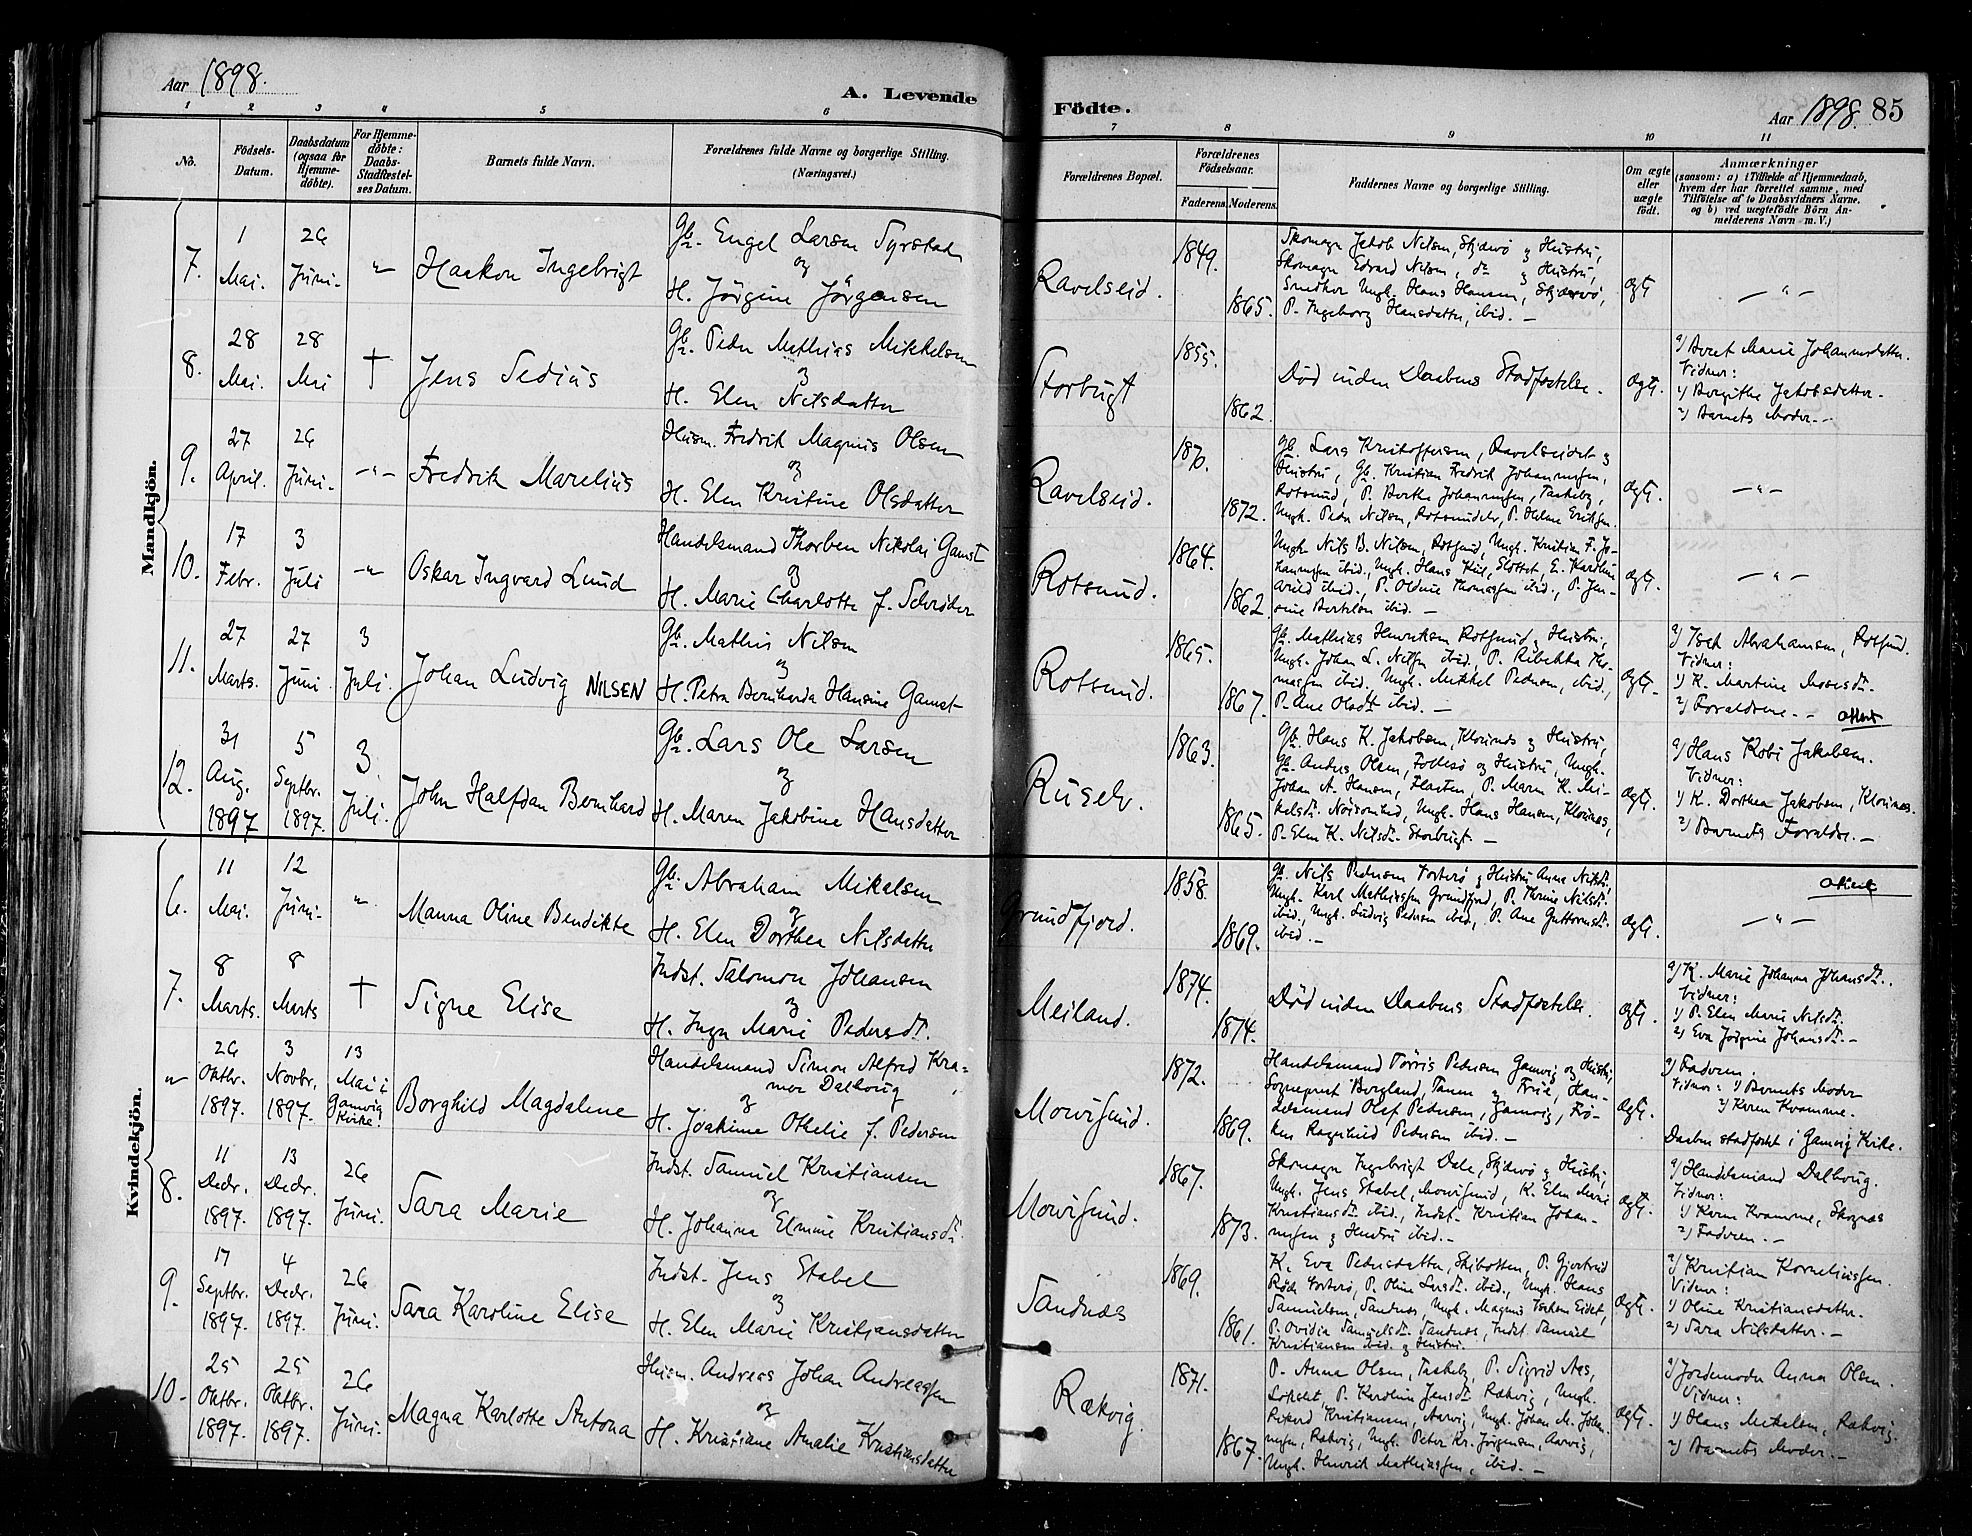 Aar 1898.
A. Levende
Födte.
Aar 1898. 85
1 2 3 4 5 6 7 8 9 10 11
No.
Födsels-Datum.
Daabsdatum (ogsaa for Hjemme-döbte).
For Hjemme-döbte: Daabs-Stadfæstel-ses Datum.
Barnets fulde Navn.
Forældrenes fulde Navne og borgerlige Stilling. (Næringsvei.)
Forældrenes Bopæl.
Forældrenes Födselsaar.
Faderens. Moderens.
Faddernes Navne og borgerlige Stilling.
Om ægte eller uægte födt.
Anmærkninger
(saasom: a) i Tilfælde af Hjemmedaab, hvem der har forrettet samme, med Tilföielse af to Daabsvidners Navne. og b) ved uægtefödte Börn An-melderens Navn m. V.)
Mandkjön.
7. 1 Mai. 26 Juni. " Haakon Ingebrigt
Gb. Engel Larsen Syrstad
og
H. Jörgine Jörgensen
Ravelseid. 1849. 1865.
Skomager Jakob Nilsen, Skjervö og Hustru,
Skomager Edvard Nilsen, do og Hustru,
Ungk. Hans Hansen, Skjervö,
P. Ingeborg Hansdatter, ibid. —
ægt. — " —
8. 28 Mai. 28 Mai † Jens Sedius
Gb. Peder Mathias Mikkelsen
og
H. Elen Nilsdatter
Storbugt 1855. 1862.
Död inden Daabens Stadfæstelse.
ægt.
a) Beret Marie Johannesdatter.
Vidner:
1) Bergithe Jakobsdatter.
2) Barnets Moder. —
9. 27 April. 26 Juni. — " — Fredrik Marelius
Husm. Fredrik Magnus Olsen
og
H. Elen Kristine Olsdatter
Ravelseid. 1870. 1872.
Gb. Lars Kristoffersen, Ravelseidet og
Hustru, Gb. Kristian Fredrik Johannesen,
Rotsund, P. Berthe Johannesen, Taskeby,
Ungk. Peder Nilsen, Rotsundelv, P. Helene Eriksen.
ægt. — " —
10. 17 Febr. 3 Juli — " Oskar Ingvard Lund
Handelsmand Thorben Nikolai Gamst
og
H. Marie Charlotte f. Schröder
Rotsund. 1864. 1862
Ungk. Nils B. Nilsen, Rotsund, Ungk. Kristian F. Jo-
hannesen ibid., Ungk. Hans Kiil, Slottet, E. Karoline
ibid., P. Oldine Thomassen ibid., P. Jen-
sine Bertelsen ibid. —
ægt. — " —
11. 27 Marts. 27 Juni 3 Juli. Johan Ludvig NILSEN
Gb. Mathis Nilsen
og
H. Petra Bernharda Hansine Gamst
Rotsund. 1865. 1867.
Gb. Mathias Henriksen Rotsund og Hustru,
Ungk. Johan L. Nilsen ibid., P. Ribekka Tho-
masen ibid., Ungk. Mikkel Pedersen, ibid.,
P. Ane Olsdt ibid. —
ægt.
a) Isak Abrahamsen, Rotsund.
Vidner:
1) K. Martine Mosesdt.
2) Forældrene. — Attest
12. 31 Aug. 1897 5 Septbr. 1897. 3 Juli. John Halfdan Bernhard
Gb. Lars Ole Larsen
og
H. Maren Jakobine Hansdatter
Ruselv. 1863. 1865.
Gb. Hans K. Jakobsen, Klovnes og Hustru,
Gb. Anders Olsen, Follesö og Hustru, Ungk.
Johan A. Hansen, Flaaten, P. Maren K. Mi-
kelsdt. Noisomhed, Ungk. Hans Hansen, Klovnes,
P. Elen K. Nilsdt. Storbugt. —
ægt.
a) Hans Kobi Jakobsen.
Vidner:
1) K. Dorthea Jakobsen, Klovnes.
2) Barnets Forældre. —
Kvindekjön.
6. 11 Mai. 12 Juni. " Manna Oline Bendikte
Gb. Abraham Mikalsen
og
H. Elen Dorthea Nilsdatter
Grundfjord. 1858. 1869.
Gb. Nils Pedersen Forterö og Hustru Anne Nilsdt.
Ungk. Karl Mathiassen Grundfjord, P. Thrine Nilsdt.
ibid, Ungk. Ludvig Pedersen ibid, P. Ane Guttormsdt.
ibid. —
ægt. Attest
— " —
7. 8 Marts. 8 Marts † Signe Elise
Indst. Salomon Johansen
og
H. Inga Marie Pedersdt.
Meiland. 1874. 1874.
Död inden Daabens Stadfæstelse.
ægt.
a) K. Marie Johanna Johansdt.
Vidner:
1) P. Elen Marie Nilsdt.
2) Eva Jörgine Johansdt. —
" 26 Oktbr. 1897. 3 Novbr. 1897. 13 Mai i Gamvig Kirke. Borghild Magdalene
Handelsmand Simon Alfred Kra-
mer Dalboug,
og
H. Joakime Othelie f. Pedersen
Movisund. 1872. 1869.
Handelsmand Törris Pedersen Gamvig og Hustru,
Sogneprest Bergland, Tanen og Frue, Han-
delsmand Olaf Pedersen, Gamvig, Frö-
ken Ragnhild Pedersen ibid. —
ægt.
a) Faderen.
Vidner: 1) Barnets Moder
2) Karen Kvamme.
Daaben stadfæstet i Gamvig Kirke.
8. 11 Decbr. 1897. 13 Decbr. 1897. 26 Juni. Sara Marie
Indst. Samuel Kristiansen
og
H. Johanna Elmine Kristiansdt.
Movisund. 1867. 1873.
Skomager Ingebrigt Dale, Skjervö og Hustru,
Ungk. Jens Stabel, Movisund, K. Elen Marie
Kristiansdt. ibid., Indst. Kristian Johan-
nesen og Hustru ibid. —
ægt.
a) Handelsmand Dalboug.
Vidner:
1) Karen Kvamme, Skognæs
2) Faderen. —
9. 17 Septbr. 1897. 4 Decbr. 1897. 26 Juni. Sara Karoline Elise
Indst. Jens Stabel
og
H. Elen Marie Kristiansdatter
Sandnæs 1869. 1861.
K. Eva Pedersdatter, Skibotten, P. Gjertrud
Forterö, P. Oline Larsdt. ibid, Ungk. Hans
Samuelsen, Sandnæs, Ungk. Magnus Eidet,
P. Ovidia Samuelsdt. Sandnæs, Indst. Samuel
Kristiansen ibid. og Hustru.
ægt.
a) Kristian Korneliussen.
Vidner:
1) Oline Kristiansdatter.
2) Sara Nilsdatter. —
10. 25 Oktbr. 1897. 25 Oktbr. 1897. 26 Juni. Magna Karlotte Antona
Husm. Andreas Johan Andreassen
og
H. Kristiane Amalie Kristiansdatter
Rækvig. 1871. 1867.
P. Anna Olsen, Taskeby, P. Sigrid Aas,
P. Karoline Jensdt. Rækvig, Ungk.
Rikard Kristiansen, Aarvig, Ungk. Johan M. Johan-
nesen, Rækvig, Ungk. Peter Kr. Jörgensen, Aarvig,
Ungk. Henrik Mathiassen, ibid. —
ægt.
a) Jordemoder Anna Olsen.
Vidner:
1) Hans Mikalsen, Rækvig.
2) Barnets Moder. —